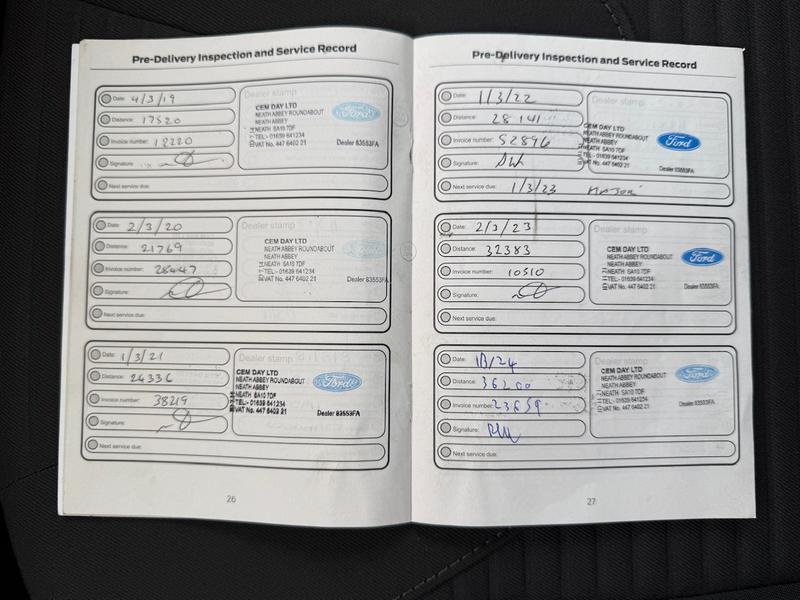 Pre-Delivery Inspection and Service Record
Date: 4/3/19
Distance: 17520
Invoice number: 18220
Signature:
Next service due:
Dealer stamp
CEM DAY LTD
NEATH ABBEY ROUNDABOUT
NEATH ABBEY
NEATH SA10 7DF
TEL:- 01639 641234
VAT No. 447 6402 21
Ford
Dealer 83553FA
Date: 2/3/20
Distance: 21769
Invoice number: 28447
Signature:
Next service due:
Dealer stamp
CEM DAY LTD
NEATH ABBEY ROUNDABOUT
NEATH ABBEY
NEATH SA10 7DF
TEL:- 01639 641234
VAT No. 447 6402 21
Ford
Dealer 83553FA
Date: 1/3/21
Distance: 24336
Invoice number: 38219
Signature:
Next service due:
Dealer stamp
CEM DAY LTD
NEATH ABBEY ROUNDABOUT
NEATH ABBEY
NEATH SA10 7DF
TEL:- 01639 641234
VAT No. 447 6402 21
Ford
Dealer 83553FA
26
Pre-Delivery Inspection and Service Record
Date: 1/3/22
Distance: 28141
Invoice number: 52896
Signature:
Next service due: 1/3/23
Dealer stamp
CEM DAY LTD
NEATH ABBEY ROUNDABOUT
NEATH ABBEY
NEATH SA10 7DF
TEL:- 01639 641234
VAT No. 447 6402 21
Ford
Dealer 83553FA
Date: 2/3/23
Distance: 32383
Invoice number: 10510
Signature:
Next service due:
CEM DAY LTD
NEATH ABBEY ROUNDABOUT
NEATH ABBEY
NEATH SA10 7DF
TEL:- 01639 641234
VAT No. 447 6402 21
Ford
Dealer 83553FA
Date:
Distance: 36200
Invoice number: 23659
Signature:
Next service due:
Dealer stamp
CEM DAY LTD
NEATH ABBEY ROUNDABOUT
NEATH ABBEY
NEATH SA10 7DF
TEL:- 01639 641234
VAT No. 447 6402 21
Ford
Dealer 83553FA
27